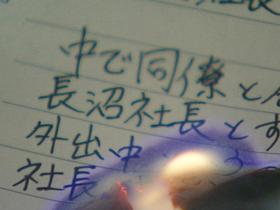 中で同僚と
長沼社長とす
外出中
社長